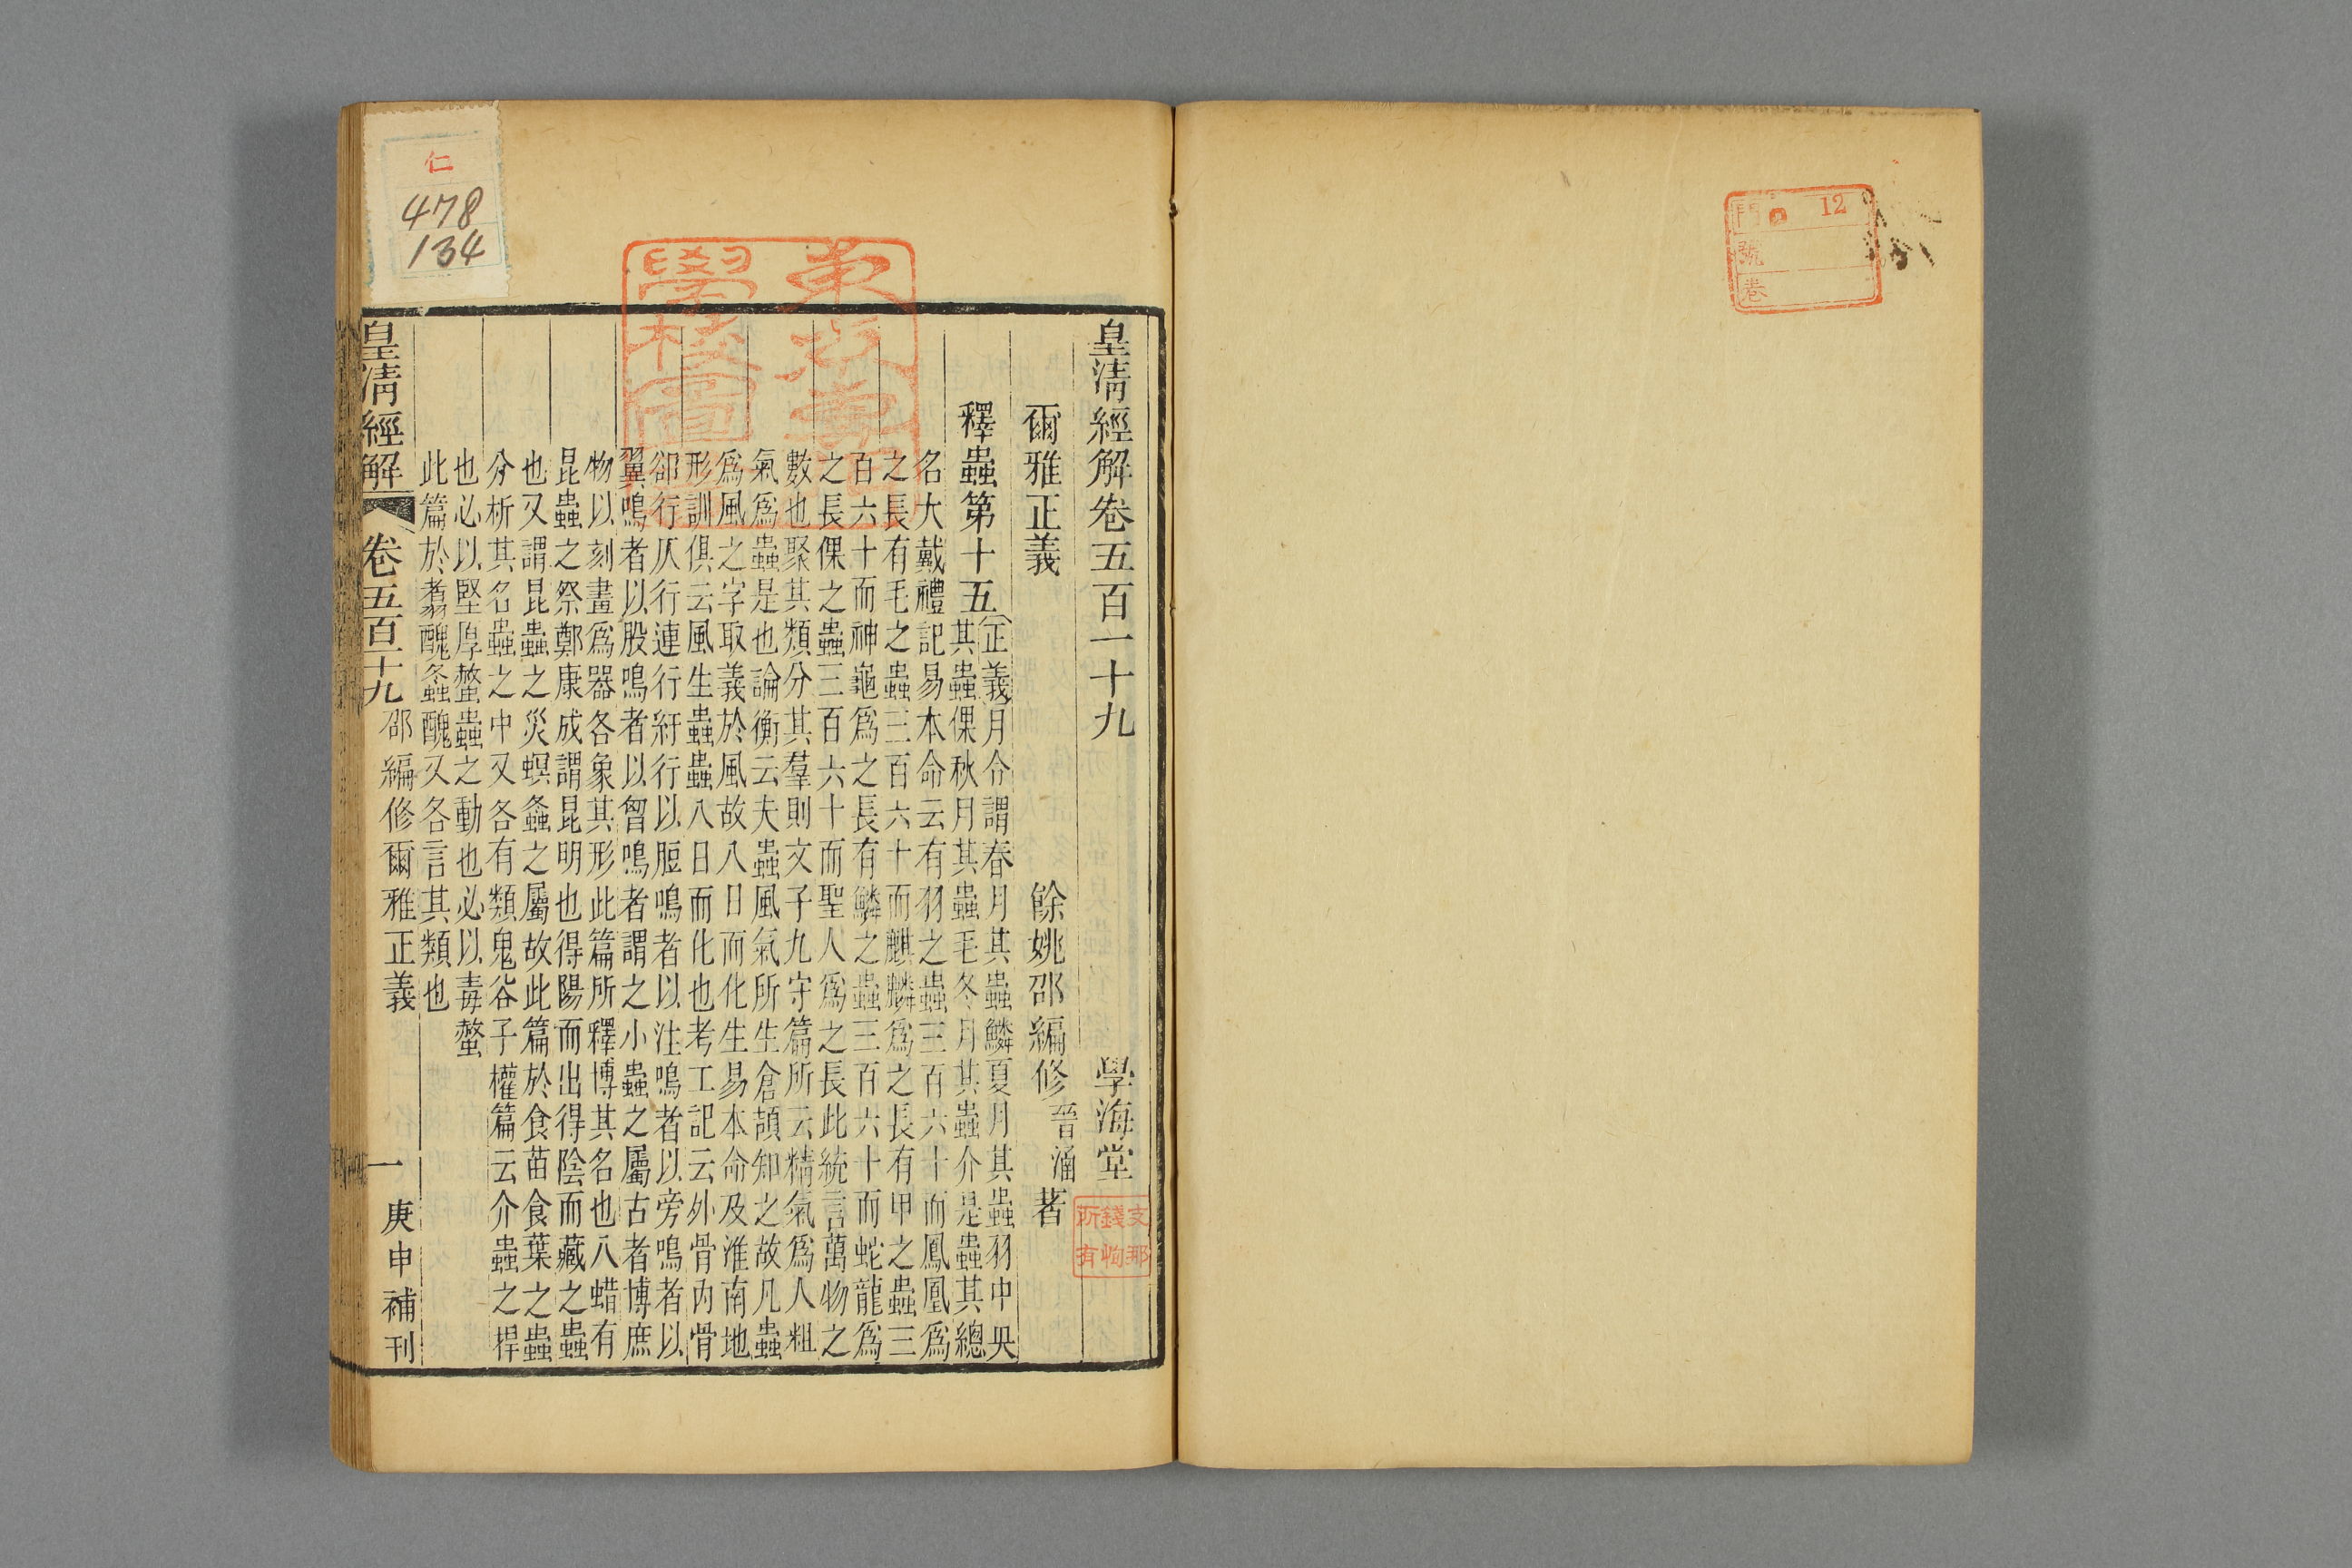 門 12
號
卷
皇清經解卷五百一十九 學海堂
爾雅正義 餘姚邵編修晉涵著
釋蟲第十五
正義月令謂春月其蟲鱗夏月其蟲羽中央
其蟲倮秋月其蟲毛冬月其蟲介是蟲其總
名大戴禮記易本命云有羽之蟲三百六十而鳳凰爲
之長有毛之蟲三百六十而麒麟爲之長有甲之蟲三
百六十而神龜爲之長有鱗之蟲三百六十而蛇龍爲
之長倮之蟲三百六十而聖人爲之長此統言萬物之
數也聚其類分其羣則文子九守篇所云精氣爲人粗
氣爲蟲是也論衡云夫蟲風氣所生倉頡知之故凡蟲
爲風之字取義於風故八日而化生易本命及淮南地
形訓俱云風生蟲蟲八日而化也考工記云外骨內骨
卻行仄行連行紆行以脰鳴者以注鳴者以旁鳴者以
翼鳴者以股鳴者以胷鳴者謂之小蟲之屬古者博庶
物以刻畫爲器各象其形此篇所釋博其名也八蜡有
昆蟲之祭鄭康成謂昆明也得陽而出得陰而藏之蟲
也又謂昆蟲之災螟螽之屬故此篇於食苗食葉之蟲
分析其名蟲之中又各有類鬼谷子權篇云介蟲之捍
也必以堅厚螫蟲之動也必以毒螫
此篇於翥醜螽醜又各言其類也
皇清經解 卷五百十九 邵編修爾雅正義 一 庚申補刊
支那
錢恂
所有
仁
478
134